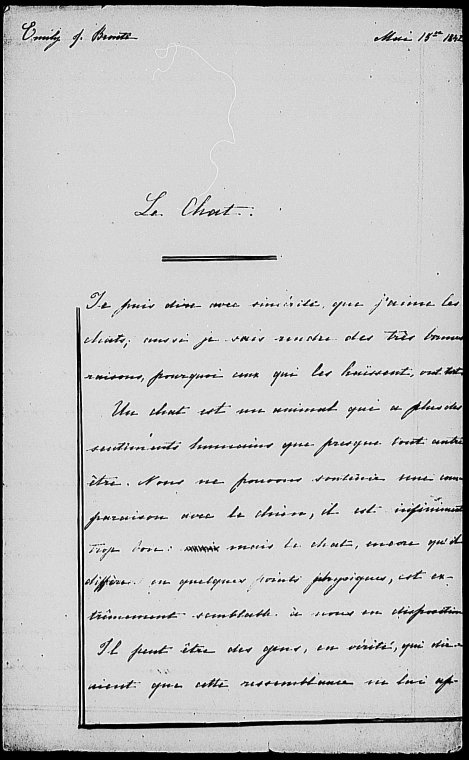 Emily J. Bronte
Mai 15me 1842
Le Chat.
Je puis dire avec sincérité, que j'aime les
chats; aussi je sais rendre des très bonnes
raisons, pourquoi ceux qui les haïssent, ont tort.
Un chat est un animal qui a plus des
sentiments humains que presque tout autre
être. Nous ne pouvons soutenir une com
paraison avec le chien, il est infiniment
trop bon: mais le chat, encore qu'il
diffère en quelques points physiques, est ex-
trêmement semblable à nous en disposition
Il peut être des gens, en vérité, qui di-
raient que cette ressemblance ne lui ap-